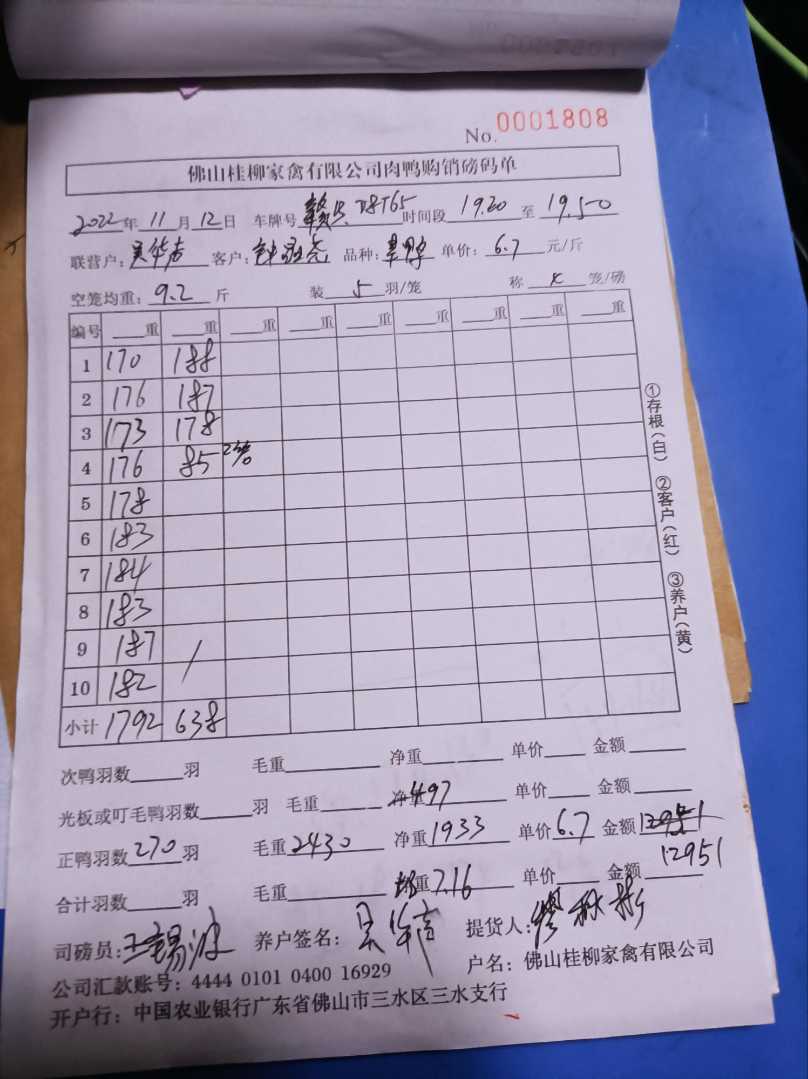 No. 0001808
佛山桂柳家禽有限公司肉鸭购销磅码单
2022年 11月 12日 车牌号 赣 D8T65 时间段 19.20 至 19.50
联营户: 吴华 客户: 钟 品种: 单价: 6.7 元/斤
空笼均重: 9.2 斤 装 5 羽/笼 称 笼/磅
编号 重 重 重 重 重 重 重 重 重
1 170 188
2 176 187
3 173 178
4 176 85 2笼
5 178
6 183
7 184
8 183
9 187
10 182
小计 1792 638
次鸭羽数 羽 毛重 净重 单价 金额
光板或叮毛鸭羽数 羽 毛重 净 497 单价 金额
正鸭羽数 270 羽 毛重 2430 净重 1933 单价 6.7 金额 12951
合计羽数 羽 毛重 均重 7.16 单价 金额 12951
司磅员: 王锡波 养户签名: 吴华 提货人:
公司汇款账号: 4444 0101 0400 16929 户名: 佛山桂柳家禽有限公司
开户行: 中国农业银行广东省佛山市三水区三水支行
①存根(白) ②客户(红) ③养户(黄)